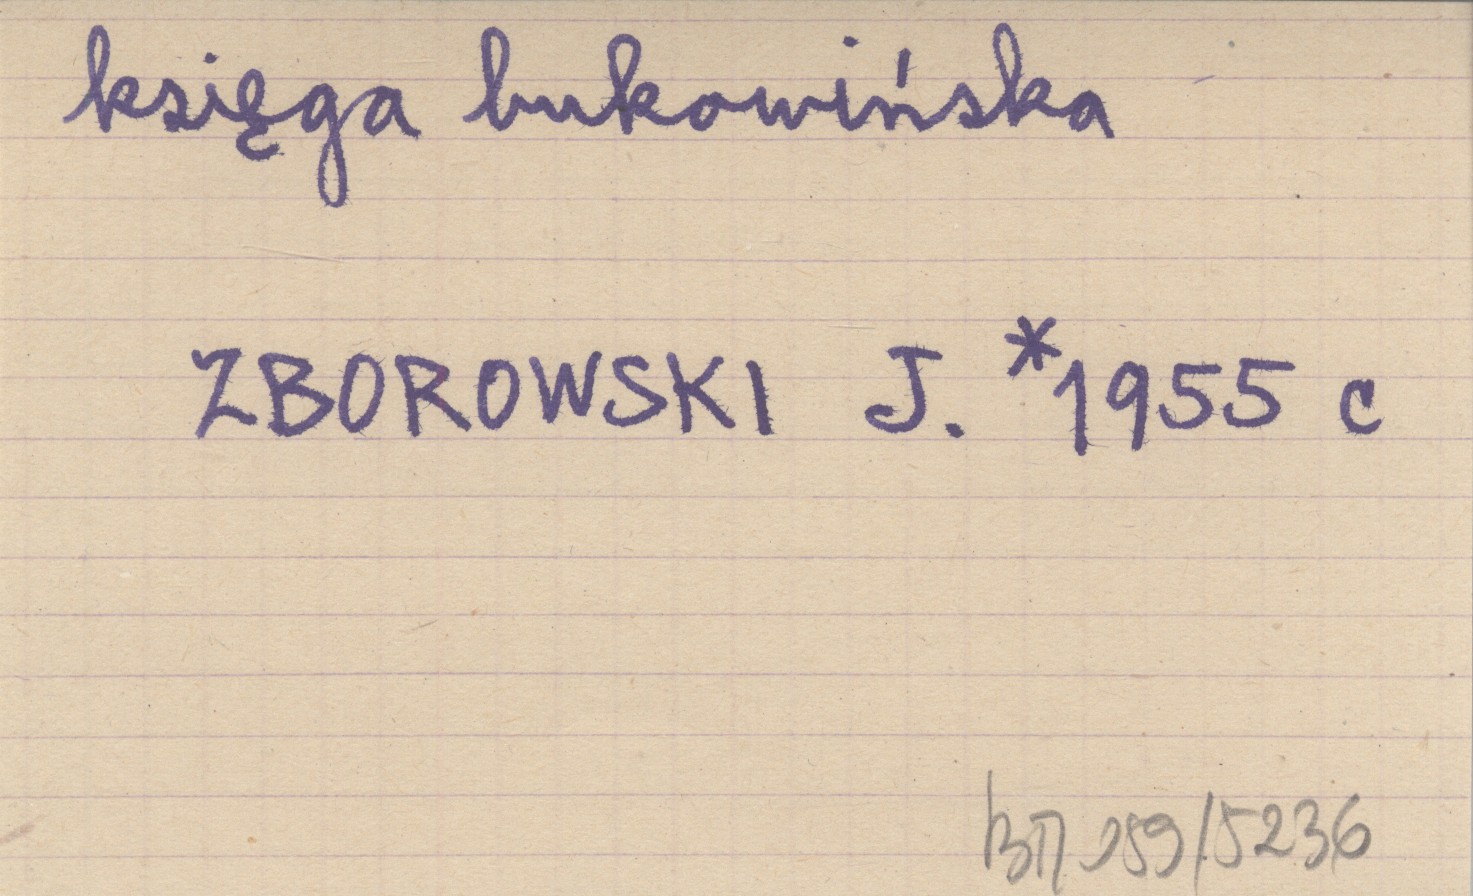 księga bukowińska
ZBOROWSKI J. *1955 c
/5236